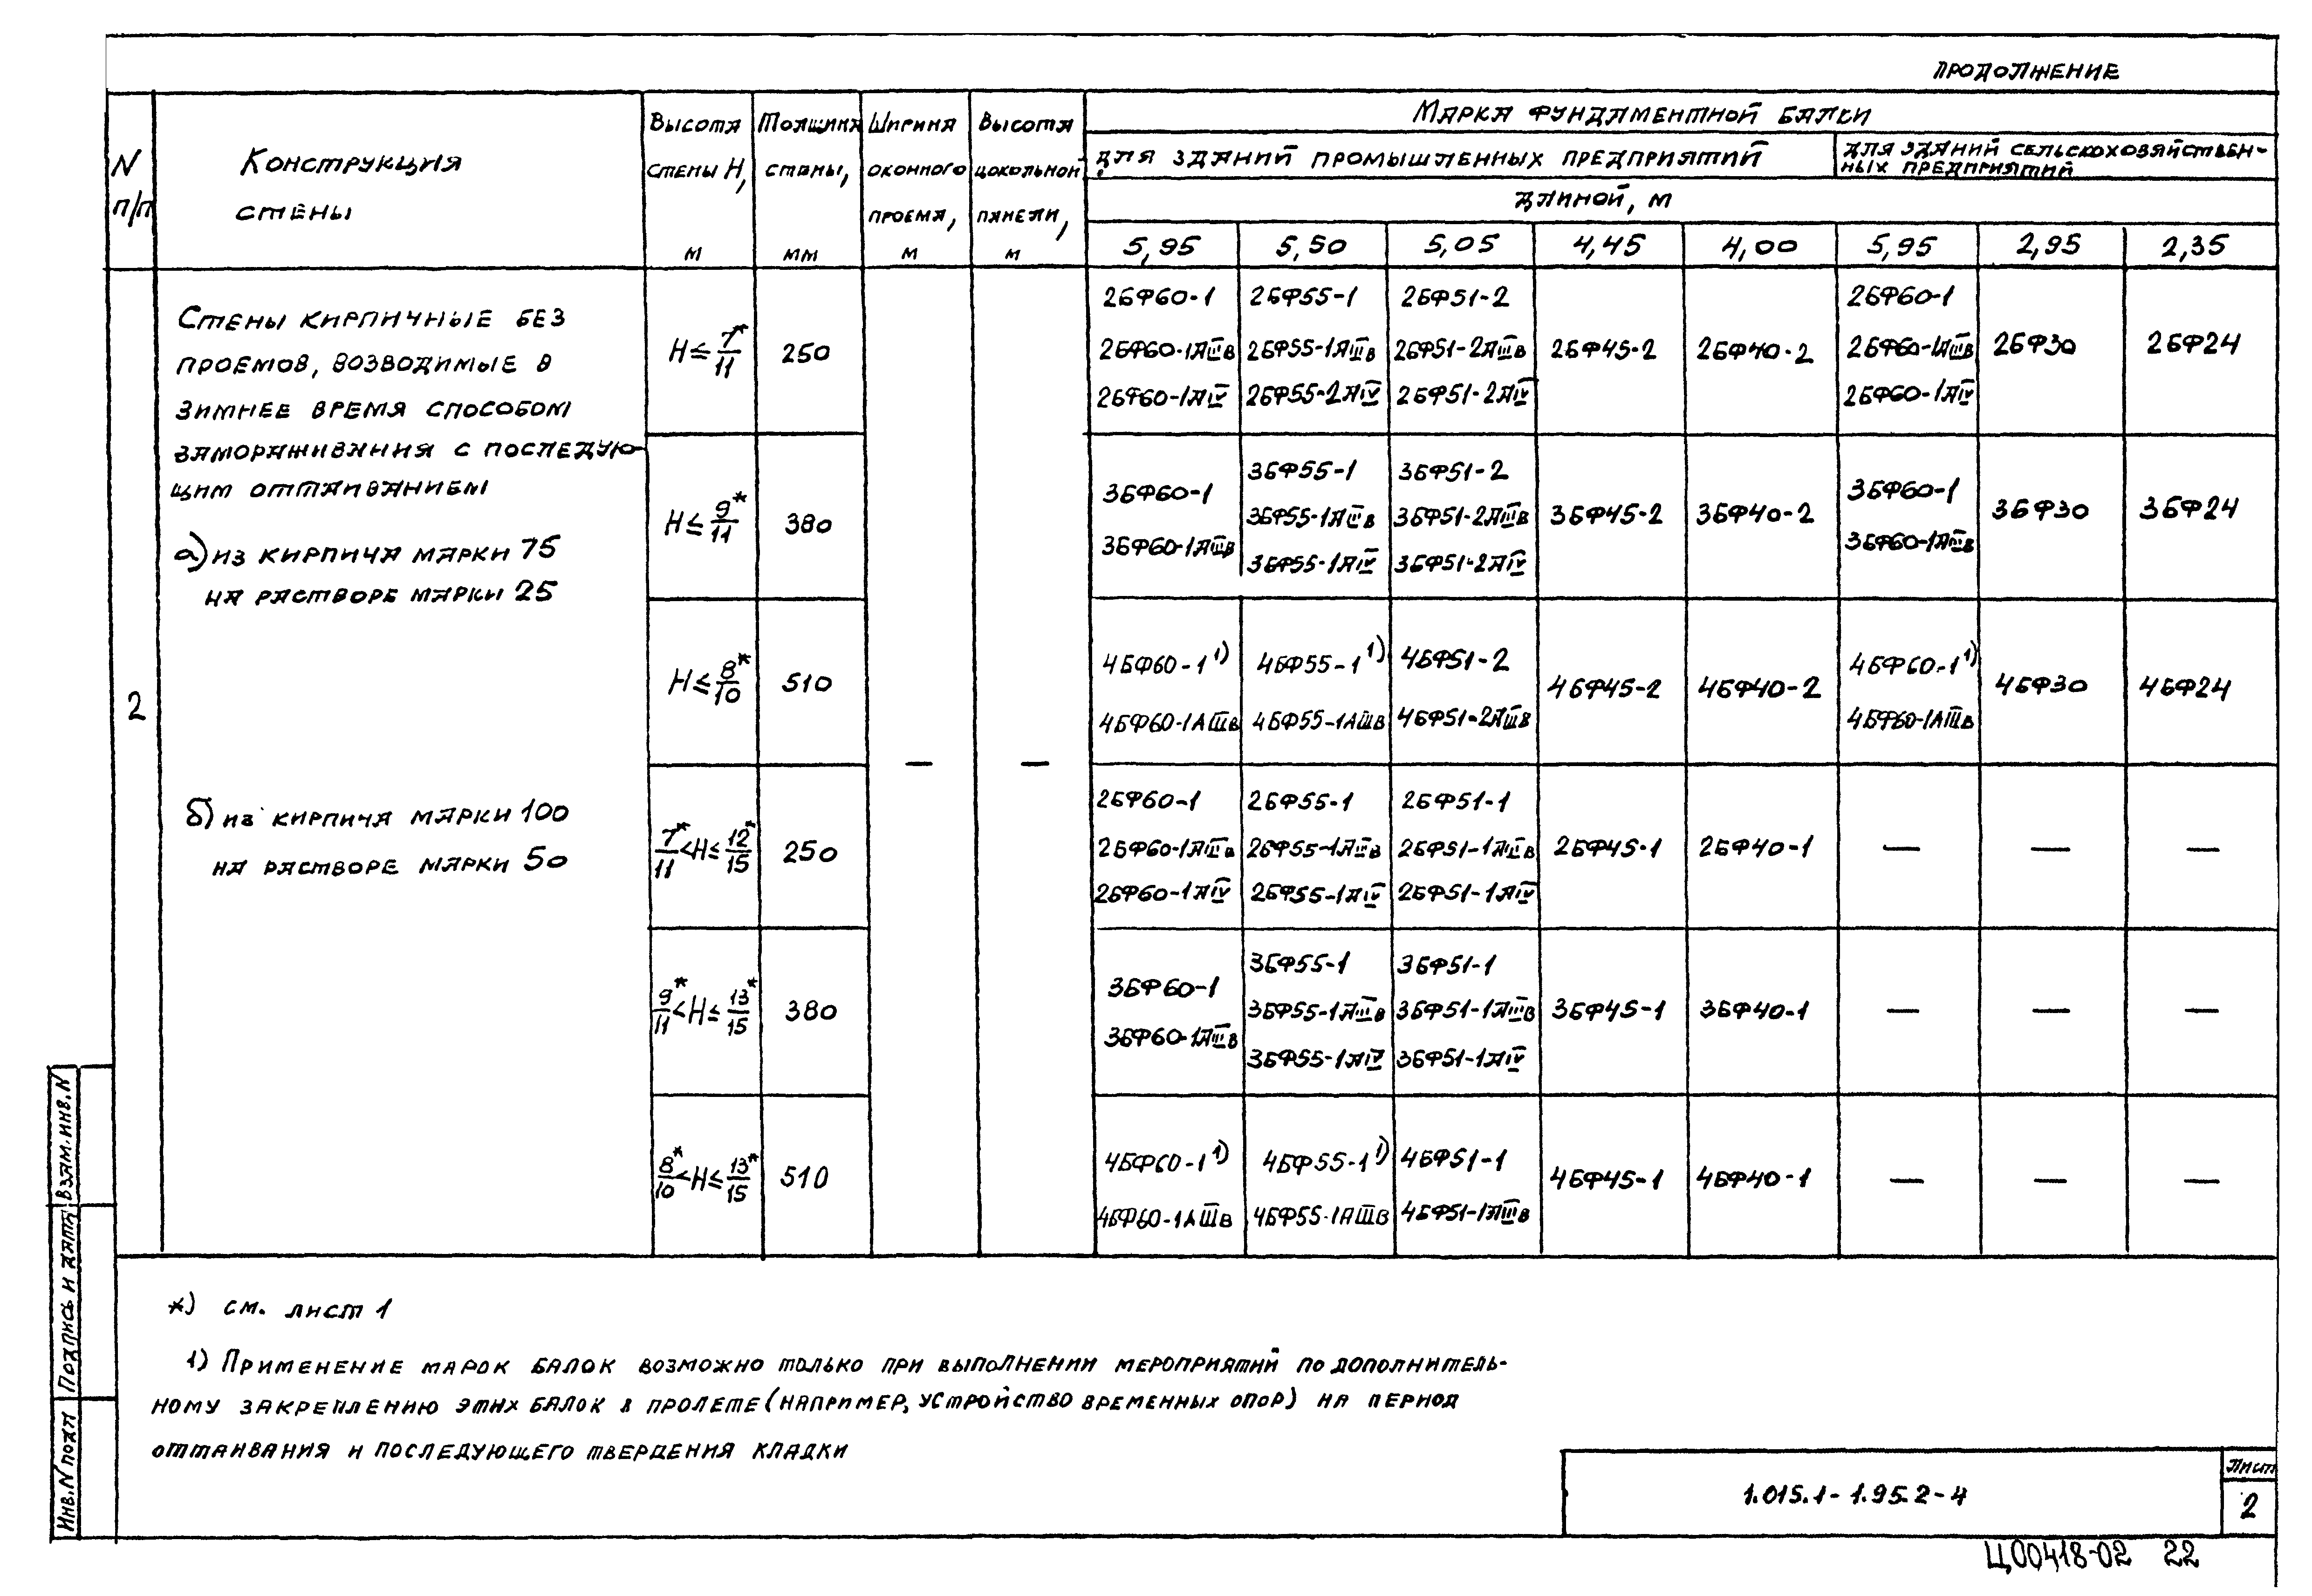 Продолжение
N п/п
Конструкция стены
Высота стены H, м
Толщина стены, мм
Ширина оконного проема, м
Высота цокольной панели, м
Марка фундаментной балки
для зданий промышленных предприятий
для зданий сельскохозяйствен-
ных предприятий
длиной, м
5,95 5,50 5,05 4,45 4,00 5,95 2,95 2,35
2
Стены кирпичные без
проемов, возводимые в
зимнее время способом
замораживания с последую-
щим оттаиванием
а) из кирпича марки 75
на растворе марки 25
б) из кирпича марки 100
на растворе марки 50
— —
H ≤ 7*/11 250
2БФ60-1 2БФ55-1 2БФ51-2 2БФ60-1
2БФ60-1АIIIв 2БФ55-1АIIIв 2БФ51-2АIIIв 2БФ45-2 2БФ40-2 2БФ60-1АIIIв 2БФ30 2БФ24
2БФ60-1АIV 2БФ55-2АIV 2БФ51-2АIV 2БФ60-1АIV
H ≤ 9*/11 380
3БФ60-1 3БФ55-1 3БФ51-2 3БФ60-1
3БФ60-1АIIIв 3БФ55-1АIIIв 3БФ51-2АIIIв 3БФ45-2 3БФ40-2 3БФ60-1АIIIв 3БФ30 3БФ24
3БФ55-1АIV 3БФ51-2АIV
H ≤ 8*/10 510
4БФ60-1 1) 4БФ55-1 1) 4БФ51-2 4БФ60-1 1)
4БФ60-1АIIIв 4БФ55-1АIIIв 4БФ51-2АIIIв 4БФ45-2 4БФ40-2 4БФ60-1АIIIв 4БФ30 4БФ24
7*/11 < H ≤ 12*/15 250
2БФ60-1 2БФ55-1 2БФ51-1
2БФ60-1АIIIв 2БФ55-1АIIIв 2БФ51-1АIIIв 2БФ45-1 2БФ40-1 — — —
2БФ60-1АIV 2БФ55-1АIV 2БФ51-1АIV
9*/11 < H ≤ 13*/15 380
3БФ60-1 3БФ55-1 3БФ51-1
3БФ60-1АIIIв 3БФ55-1АIIIв 3БФ51-1АIIIв 3БФ45-1 3БФ40-1 — — —
3БФ55-1АIV 3БФ51-1АIV
8*/10 < H ≤ 13*/15 510
4БФ60-1 1) 4БФ55-1 1) 4БФ51-1
4БФ60-1АIIIв 4БФ55-1АIIIв 4БФ51-1АIIIв 4БФ45-1 4БФ40-1 — — —
*) см. лист 1
1) Применение марок балок возможно только при выполнении мероприятий по дополнитель-
ному закреплению этих балок в пролете (например, устройство временных опор) на период
оттаивания и последующего твердения кладки
Инв. N подл
Подпись и дата
Взам. инв. N
1.015.1-1.95.2-4
Лист
2
Ц00418-02 22